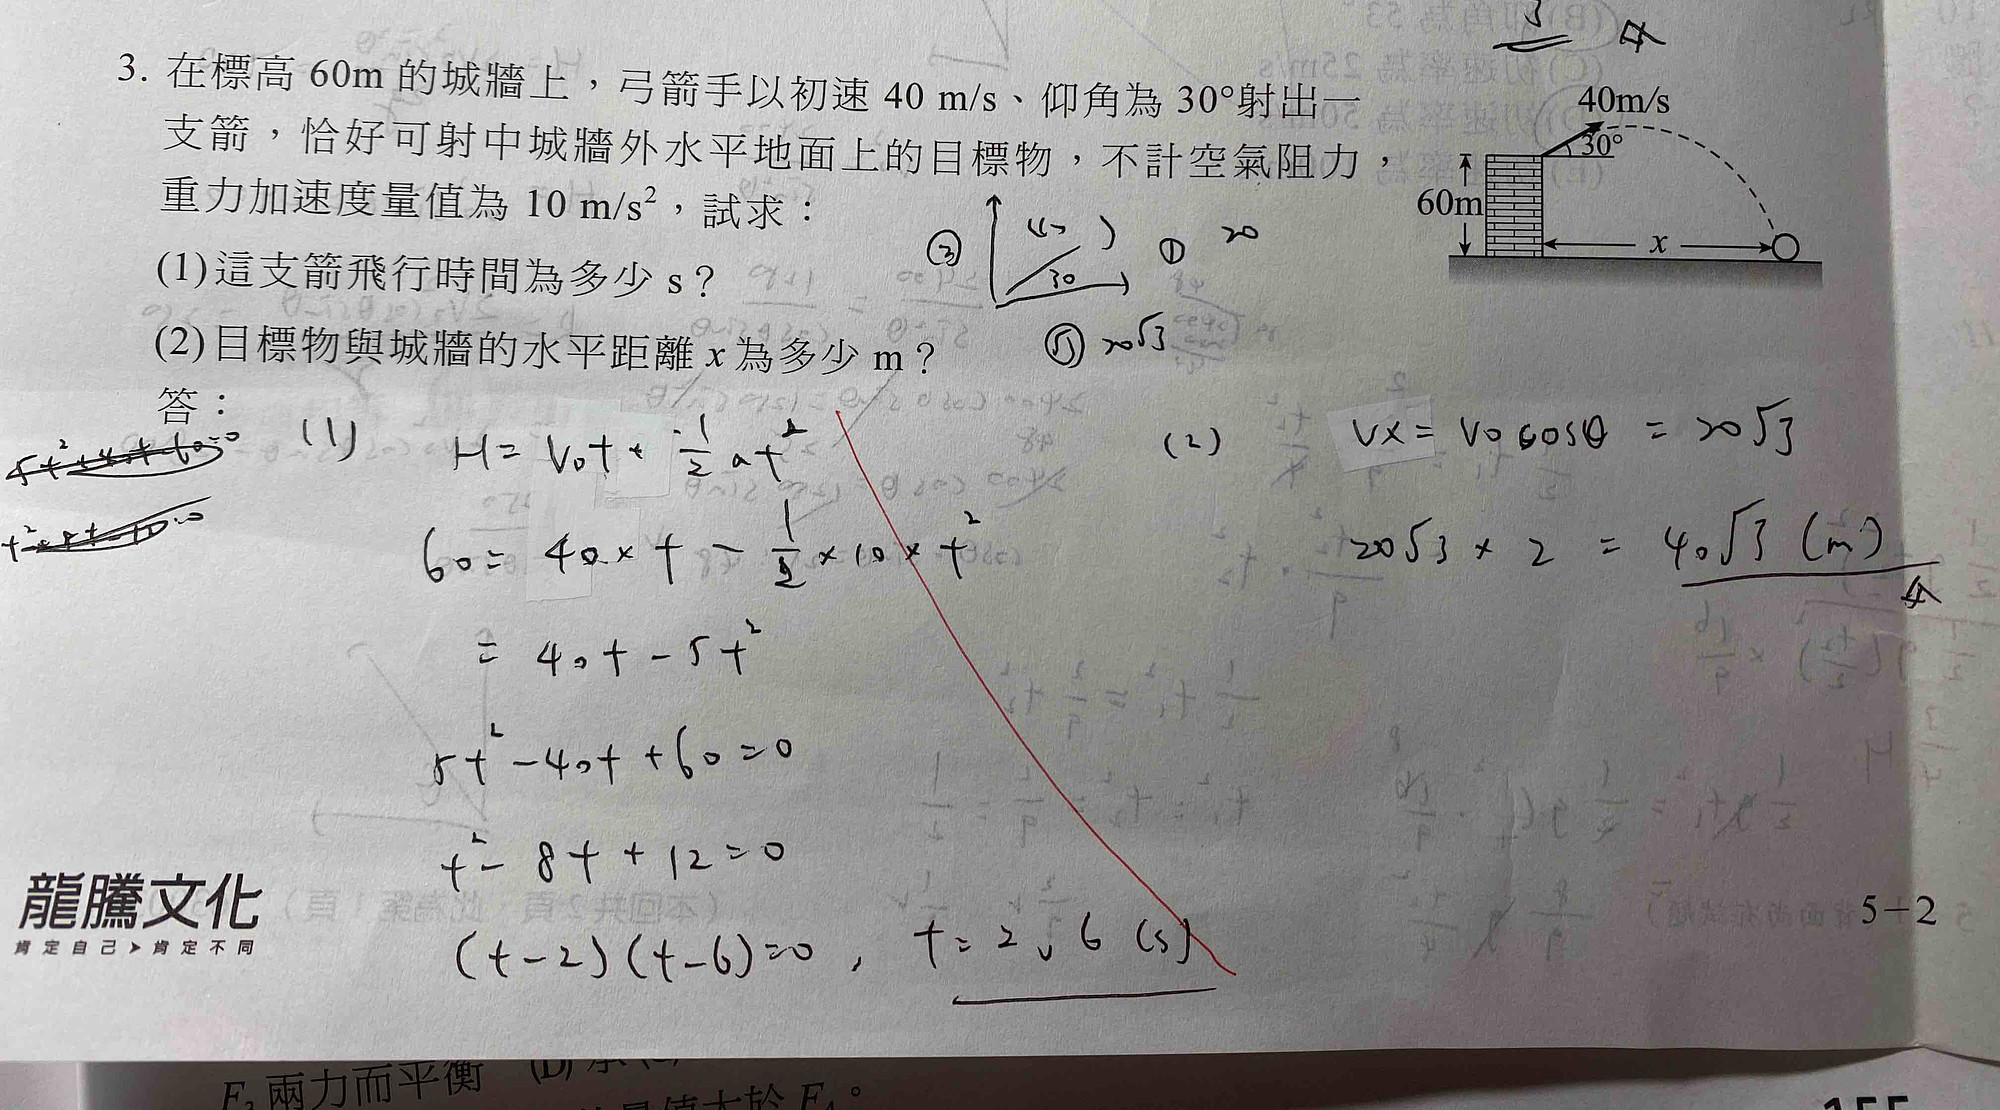 3. 在標高 60m 的城牆上，弓箭手以初速 40 m/s、仰角為 30°射出一
支箭，恰好可射中城牆外水平地面上的目標物，不計空氣阻力，
重力加速度量值為 10 m/s²，試求：
(1)這支箭飛行時間為多少 s？
(2)目標物與城牆的水平距離 x 為多少 m？
答：
40m/s
30°
60m
x
30
① 20
√3 20√3
(1) H = V₀t + ½ at²
60 = 40 × t − ½ × 10 × t²
= 40t − 5t²
5t² − 40t + 60 = 0
t² − 8t + 12 = 0
(t−2)(t−6)=0, t = 2、6 (s)
(2) Vx = V₀ cosθ = 20√3
20√3 × 2 = 40√3 (m)
龍騰文化
肯定自己➤肯定不同
5−2
兩力而平衡